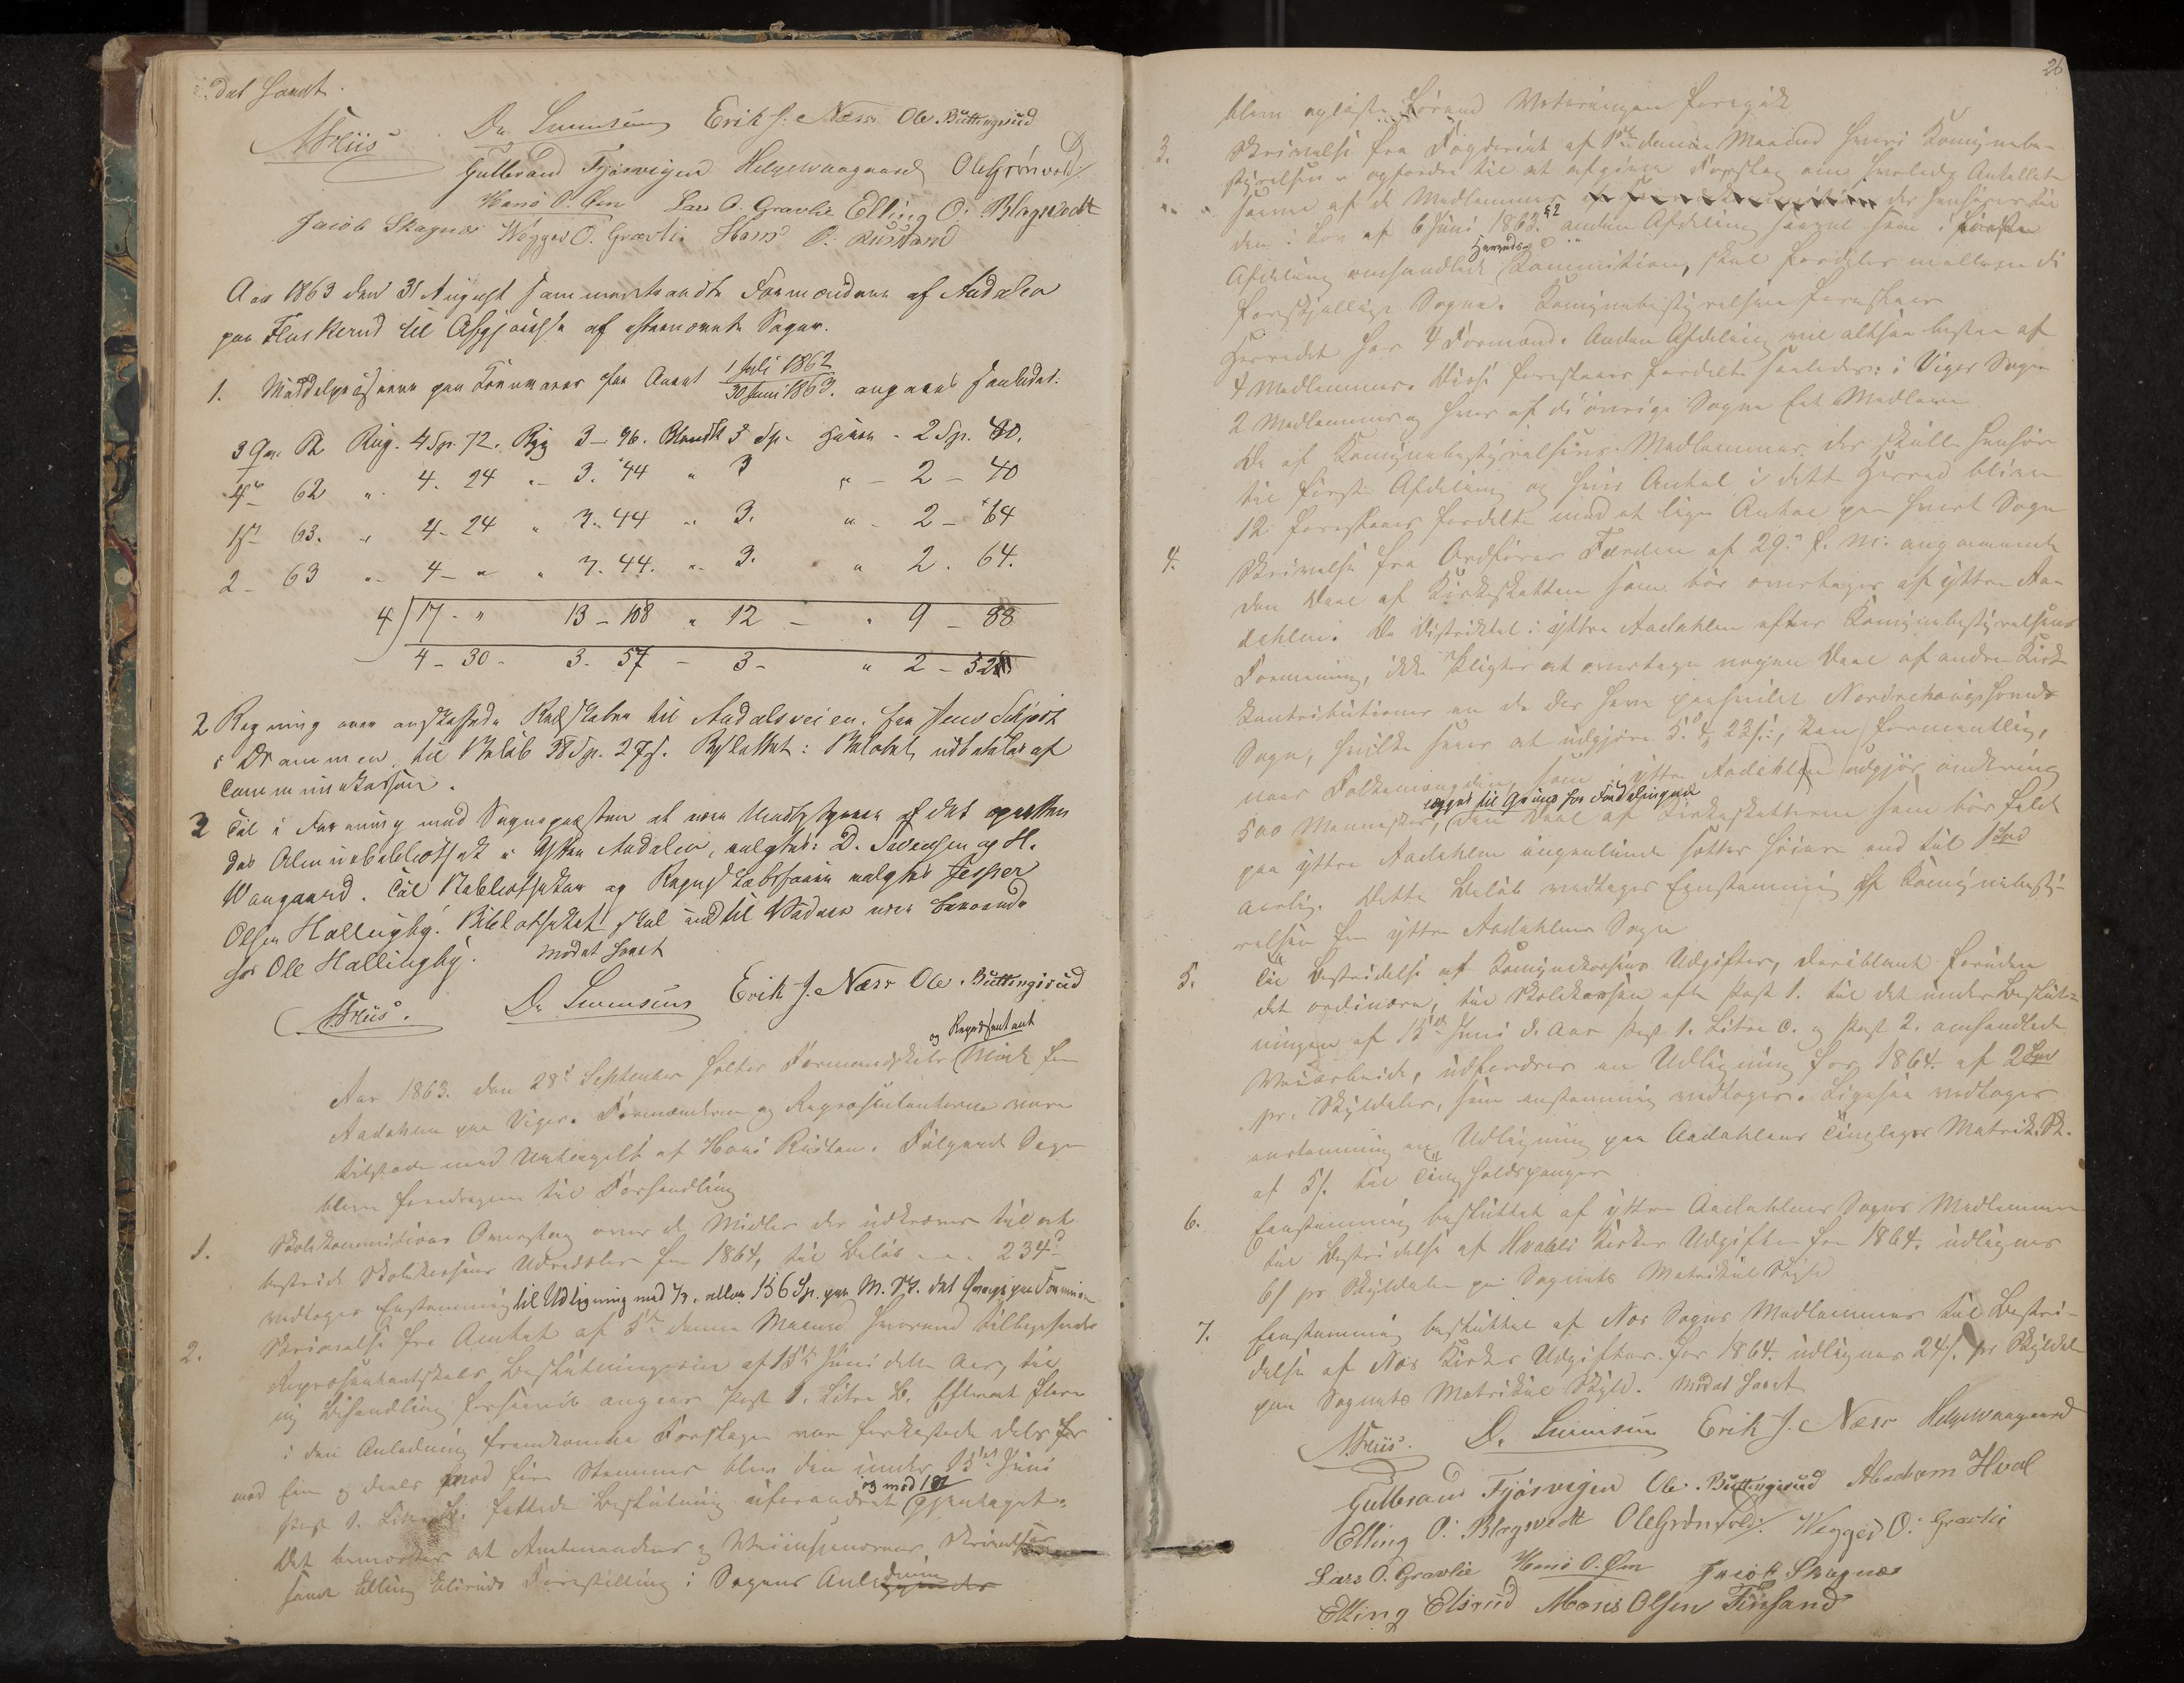 det haevet.
N. Friis Dr. Svensens Erik J. Næss Ole Buttingsrud
Gulbrand Fjøsvigen Helge Waagaard Ole Grønvold
Hans O. Øen Lars O. Gravlie Elling O. Blagsvedt
Jacob Skagnæs Wegger O. Gravlie Hans P. Rustand
Aar 1863 den 31 August sammentraadte Formændene af Aadalen
paa Flaskerud til Afgjørelse af efternævnte Sager.
1. Middelpriserne paa Kornvarer for Aaret 1 Juli 1862
30 Juni 1863. angaves saaledes:
3 Qv. 62 Rug. 4 Sp. 72. Byg 3 - 96. Blandk 3 Sp. Havre - 2 Sp. 40.
4de 62 " 4. 24 " 3. 44 " 3 " - 2 - 40
1ste 63. " 4 - 24 " 3. 44 " 3. " - 2 - 64
2 - 63 " 4 - " " 3. 44. " 3. " 2. 64.
4) 17 - " 13 - 108 " 12 - " 9 - 88
4 - 30 - 3. 57 - 3 - " 2 - 52
2 Regning over anskaffede Redskaber til Aadalsveien. fra Jens Schjøth
i Drammen, til Beløb 38 Sp. 27 s. Besluttet: Beløbet udbetales af
Communekassen.
3 Til i Forening med Sognepræsten at være Medbestyrere af det oprettende
des Almuebibliothek i Ytre Aadalen, valgtes: D. Svensen og H.
Waagaard. Til Bibliothekar og Regnskabsfører valgtes Jesper
Olsen Hallingby. Bibliotheket skal indtil Videre være beroende
hos Ole Hallingby. Mødet hævet
N. Friis. Dr. Svensens Erik J. Næss Ole Buttingsrud
og Repræsentant
Aar 1863. den 28de September holdtes Formandskabs Møde for
Aadahlen paa Viger. Formændene og Repræsentanterne vare
tilstede med Undtagelse af Hans Rustan. Følgende Sager
bleve foredragne til Forhandling
1. Skolekommissions Overslag over de Midler der udkræves til at
bestride Skolekassens Udredsler for 1864, til Beløb - - - 234 Sp
vedtages Eenstemmig til Udligning med 2/3. eller 156 Sp. paa M. Sk. det øvrige paa Formue
2. Skrivelse fra Amtet af 5te denne Maaned hvorved tilbagesendes
Repræsentantskabs Beslutningerne af 15de Juni dette Aar, til
ny Behandling forsaavidt angaar Post 1. Litra B. Efterat flere
i den Anledning fremkomne Forslage var forkastede dels for
med fem og deels imod fire Stemmer blev den under 15de Juni
Post 1. Litra B. fattede Beslutning uforandret og mod 1 gjentaget.
Det bemærkes at Amtmandens og Veiinspecteurens Skrivelse
samt Elling Elsruds Forestilling i Sagens Anledning
26
bleve oplæste førend Voteringen foregik
3. Skrivelse fra Fogderiet af 1ste denne Maaned hvori Komynebe-
styrelsen opfordres til at afgive Forslag om hvorledes Antallet
saavel af de Medlemmer der henhører til
den i Lov af 6 Juni 1863 § 2 anden Afdeling saavel som i første
Afdeling omhandlede Herreds Kommission, skal fordeles mellem de
forskjellige Sogne. Komynebestyrelsen foreslaar
Herredet har 4 Formænd. Anden Afdeling vil altsaa bestaa af
4 Medlemmer. Disse foreslaaes fordelte saaledes: i Viger Sogn
2 Medlemmer og hver af de øvrige Sogne Eet Medlem
De af Komynebestyrelsens Medlemmer der skulle henhøre
til første Afdeling og hvis Antal i dette Herred bliver
12 foreslaaes fordelte med et lige Antal paa hvert Sogn
4. Skrivelse fra Ordfører Færden af 29de f. M. angaaende
den Deel af Kirkeskatten som bør overtages af ytre Aa-
dahlen. Da Distriktet i ytre Aadahlen efter Komynebestyrelsens
Formening, ikke pligter at overtage nogen Deel af andre Kirke
Kontributioner en de der have paahvilet Norderhovs Hoveds
Sogn, hvilke synes at udgjøre 5 Spd 22 s:, kan formentlig,
naar Folkemængden, som i ytre Aadahlen udgjør omkring
500 Mennesker, lægges til Grund for Fordelingen den Deel af Kirkeskatterne som bør falde
paa ytre Aadahlen ingenlunde sættes høiere end til 1 Spd
aarlig. Dette Beløb vedtages Eenstemmig af Komynebesty-
relsen for ytre Aadahlens Sogn
5. Til Bestridelse af Komynekassens Udgifter, deriblandt foruden
det ordinære, til Skolekassen efter Post 1. til det under Beslut-
ningen af 15de Juni d. Aar Post 1. Litra C. og Post 2. omhandlede
Veiarbeide, udfordres en Udligning for 1864. af 2 Ort
pr. Skylddaler, som enstemmig vedtages. Ligesaa vedtages
enstemmig en Udligning paa Aadahlens Tinglags Matrik. Sk.
af 5 s. til Tingholdspenger
6. Eenstemmig besluttet af ytre Aadahlens Sogns Medlemmer
til Bestridelse af Hvals Kirkes Udgifter for 1864. udlignes
6 s pr Skylddaler paa Sognets Matrikul Skyld
7. Eenstemmig besluttet af Næs Sogns Medlemmer til Bestri-
delse af Næs Kirkes Udgifter for 1864. udlignes 24 s. pr Skylddal
paa Sognets Matrikul Skyld. Mødet hævet
N. Friis. Dr. Svensens Erik J. Næss Helge Waagaard
Gulbrand Fjøsvigen Ole Buttingsrud Abraham Hval
Elling O. Blagsvedt Ole Grønvold. Wegger O. Gravlie
Lars O. Gravlie Hans O. Øen Jacob Skagnæs
Elling Elsrud Hans Olsen Finsand